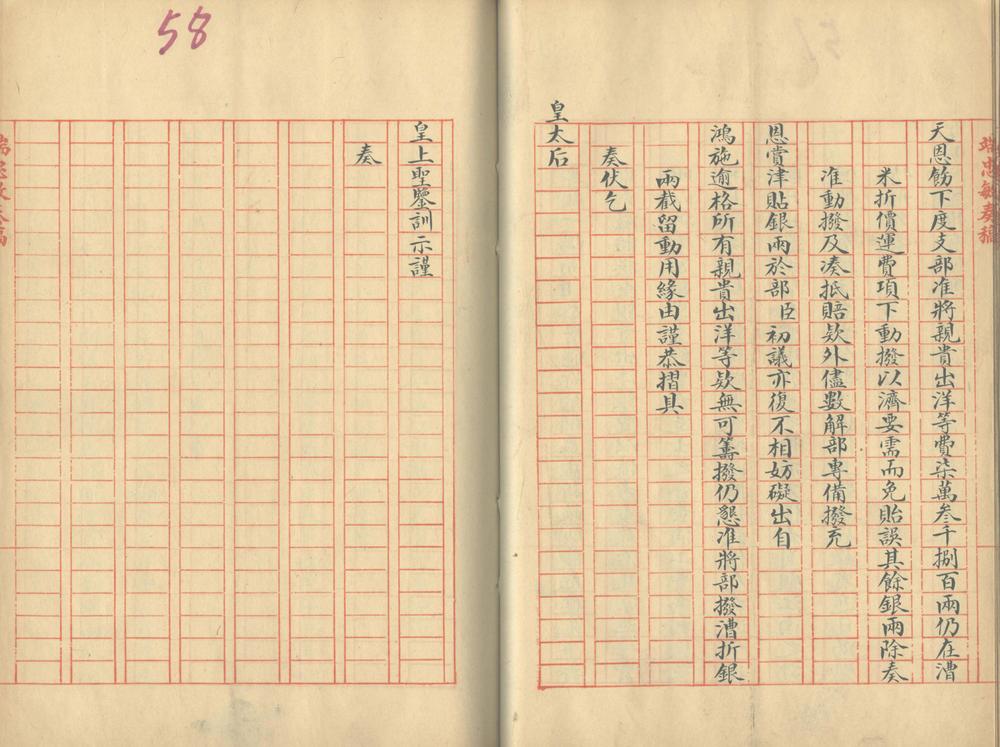 天恩飭下度支部准將親貴出洋等費柒萬叁千捌百兩仍在漕
米折價運費項下動撥以濟要需而免貽誤其餘銀兩除奏
准動撥及湊抵賠欵外儘數解部專備撥充
恩賞津貼銀兩於部臣初議亦復不相妨礙出自
鴻施逾格所有親貴出洋等欵無可籌撥仍懇准將部撥漕折銀
兩截留動用緣由謹恭摺具
奏伏乞
皇太后
皇上聖鑒訓示謹
奏
端忠敏奏稿
58